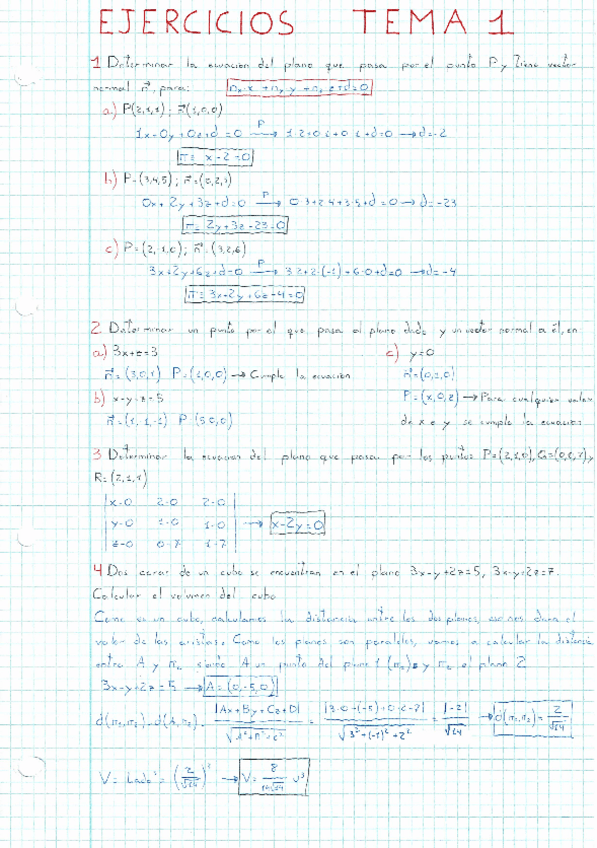 EJERCICIOS TEMA 1
1 Determinar la ecuación del plano que pasa por el punto P y tiene vector
normal n⃗, para: nₓ x + nᵧ y + n_z z + d = 0
a) P(2,1,1); n⃗(1,0,0)
1x-0y+0z+d=0 →(P) 1·2+0·1+0·1+d=0 → d=-2
π≡ x-2=0
b) P=(3,4,5); n⃗=(0,2,3)
0x+2y+3z+d=0 →(P) 0·3+2·4+3·5+d=0 → d=-23
π≡ 2y+3z-23=0
c) P=(2,-1,0); n⃗=(3,2,6)
3x+2y+6z+d=0 →(P) 3·2+2·(-1)+6·0+d=0 → d=-4
π≡ 3x+2y+6z-4=0
2 Determinar un punto por el que pasa el plano dado y un vector normal a él, en
a) 3x+z=3
n⃗=(3,0,1) P=(1,0,0) → Cumple la ecuación
b) x-y-z=5
n⃗=(1,-1,-1) P=(5,0,0)
c) y=0
n⃗=(0,1,0)
P=(x,0,z) → Para cualquier valor
de x e y se cumple la ecuación
3 Determinar la ecuación del plano que pasa por los puntos P=(2,1,0), Q=(0,0,1) y
R=(2,1,1)
|x-0 2-0 2-0|
|y-0 1-0 1-0| → x-2y=0
|z-0 0-1 1-1|
4 Dos caras de un cubo se encuentran en el plano 3x-y+2z=5, 3x-y+2z=7.
Calcular el volumen del cubo
Como es un cubo, calculamos la distancia entre los dos planos, eso nos dará el
valor de las aristas. Como los planos son paralelos, vamos a calcular la distancia
entre A y π₂ siendo A un punto del plano 1 (π₁) y π₂ el plano 2
3x-y+2z=5 → A=(0,-5,0)
d(π₁,π₂)=d(A,π₂)= |Ax+By+Cz+D| / √(A²+B²+C²) = |3·0-(-5)+0·2-7| / √(3²+(-1)²+2²) = |-2| / √14 → d(π₁,π₂)= 2/√14
V= Lado³ = (2/√14)³ → V= 8/(14√14) u³